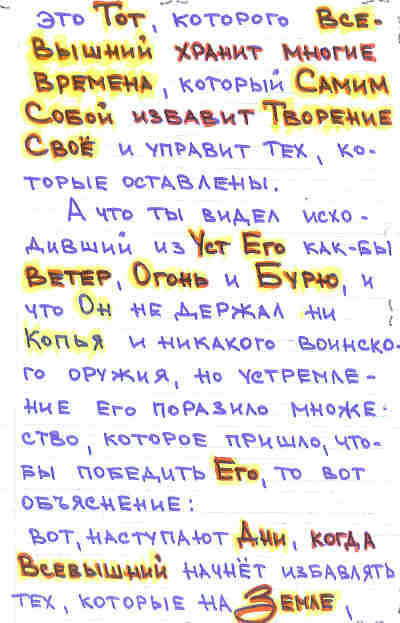 это Тот, которого Все-
вышний хранит многие
времена, который Самим
Собой избавит Творение
Своё и управит тех, ко-
торые оставлены.
А что ты видел исхо-
дивший из Уст Его как-бы
Ветер, Огонь и Бурю, и
что Он не держал ни
копья и никакого воинско-
го оружия, но устремле-
ние Его поразило множе-
ство, которое пришло, что-
бы победить Его, то вот
объяснение:
Вот, наступают Дни, когда
Всевышний начнёт избавлять
тех, которые на Земле,